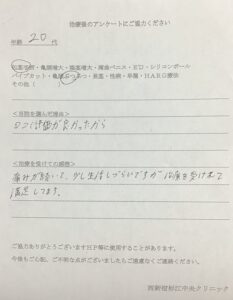 治療後のアンケートにご協力ください
年齢 20 代
包茎手術・亀頭増大・陰茎増大・薄・ペニス・ED・シリコンボール
パイプカット・亀頭ぶつぶつ・長茎・性病・早漏・HARG療法
その他（
＜当院を選んだ理由＞
口コミ評価が良かったから
＜治療を受けての感想＞
痛みが続いて、少し生活しづらいですが治療を受けれて
満足してます。
ご協力ありがとうございますHP等に使用することがあります。
今後も心配、ご不明な点がございましたらご遠慮なくご連絡ください。
西新宿杉江中央クリニック